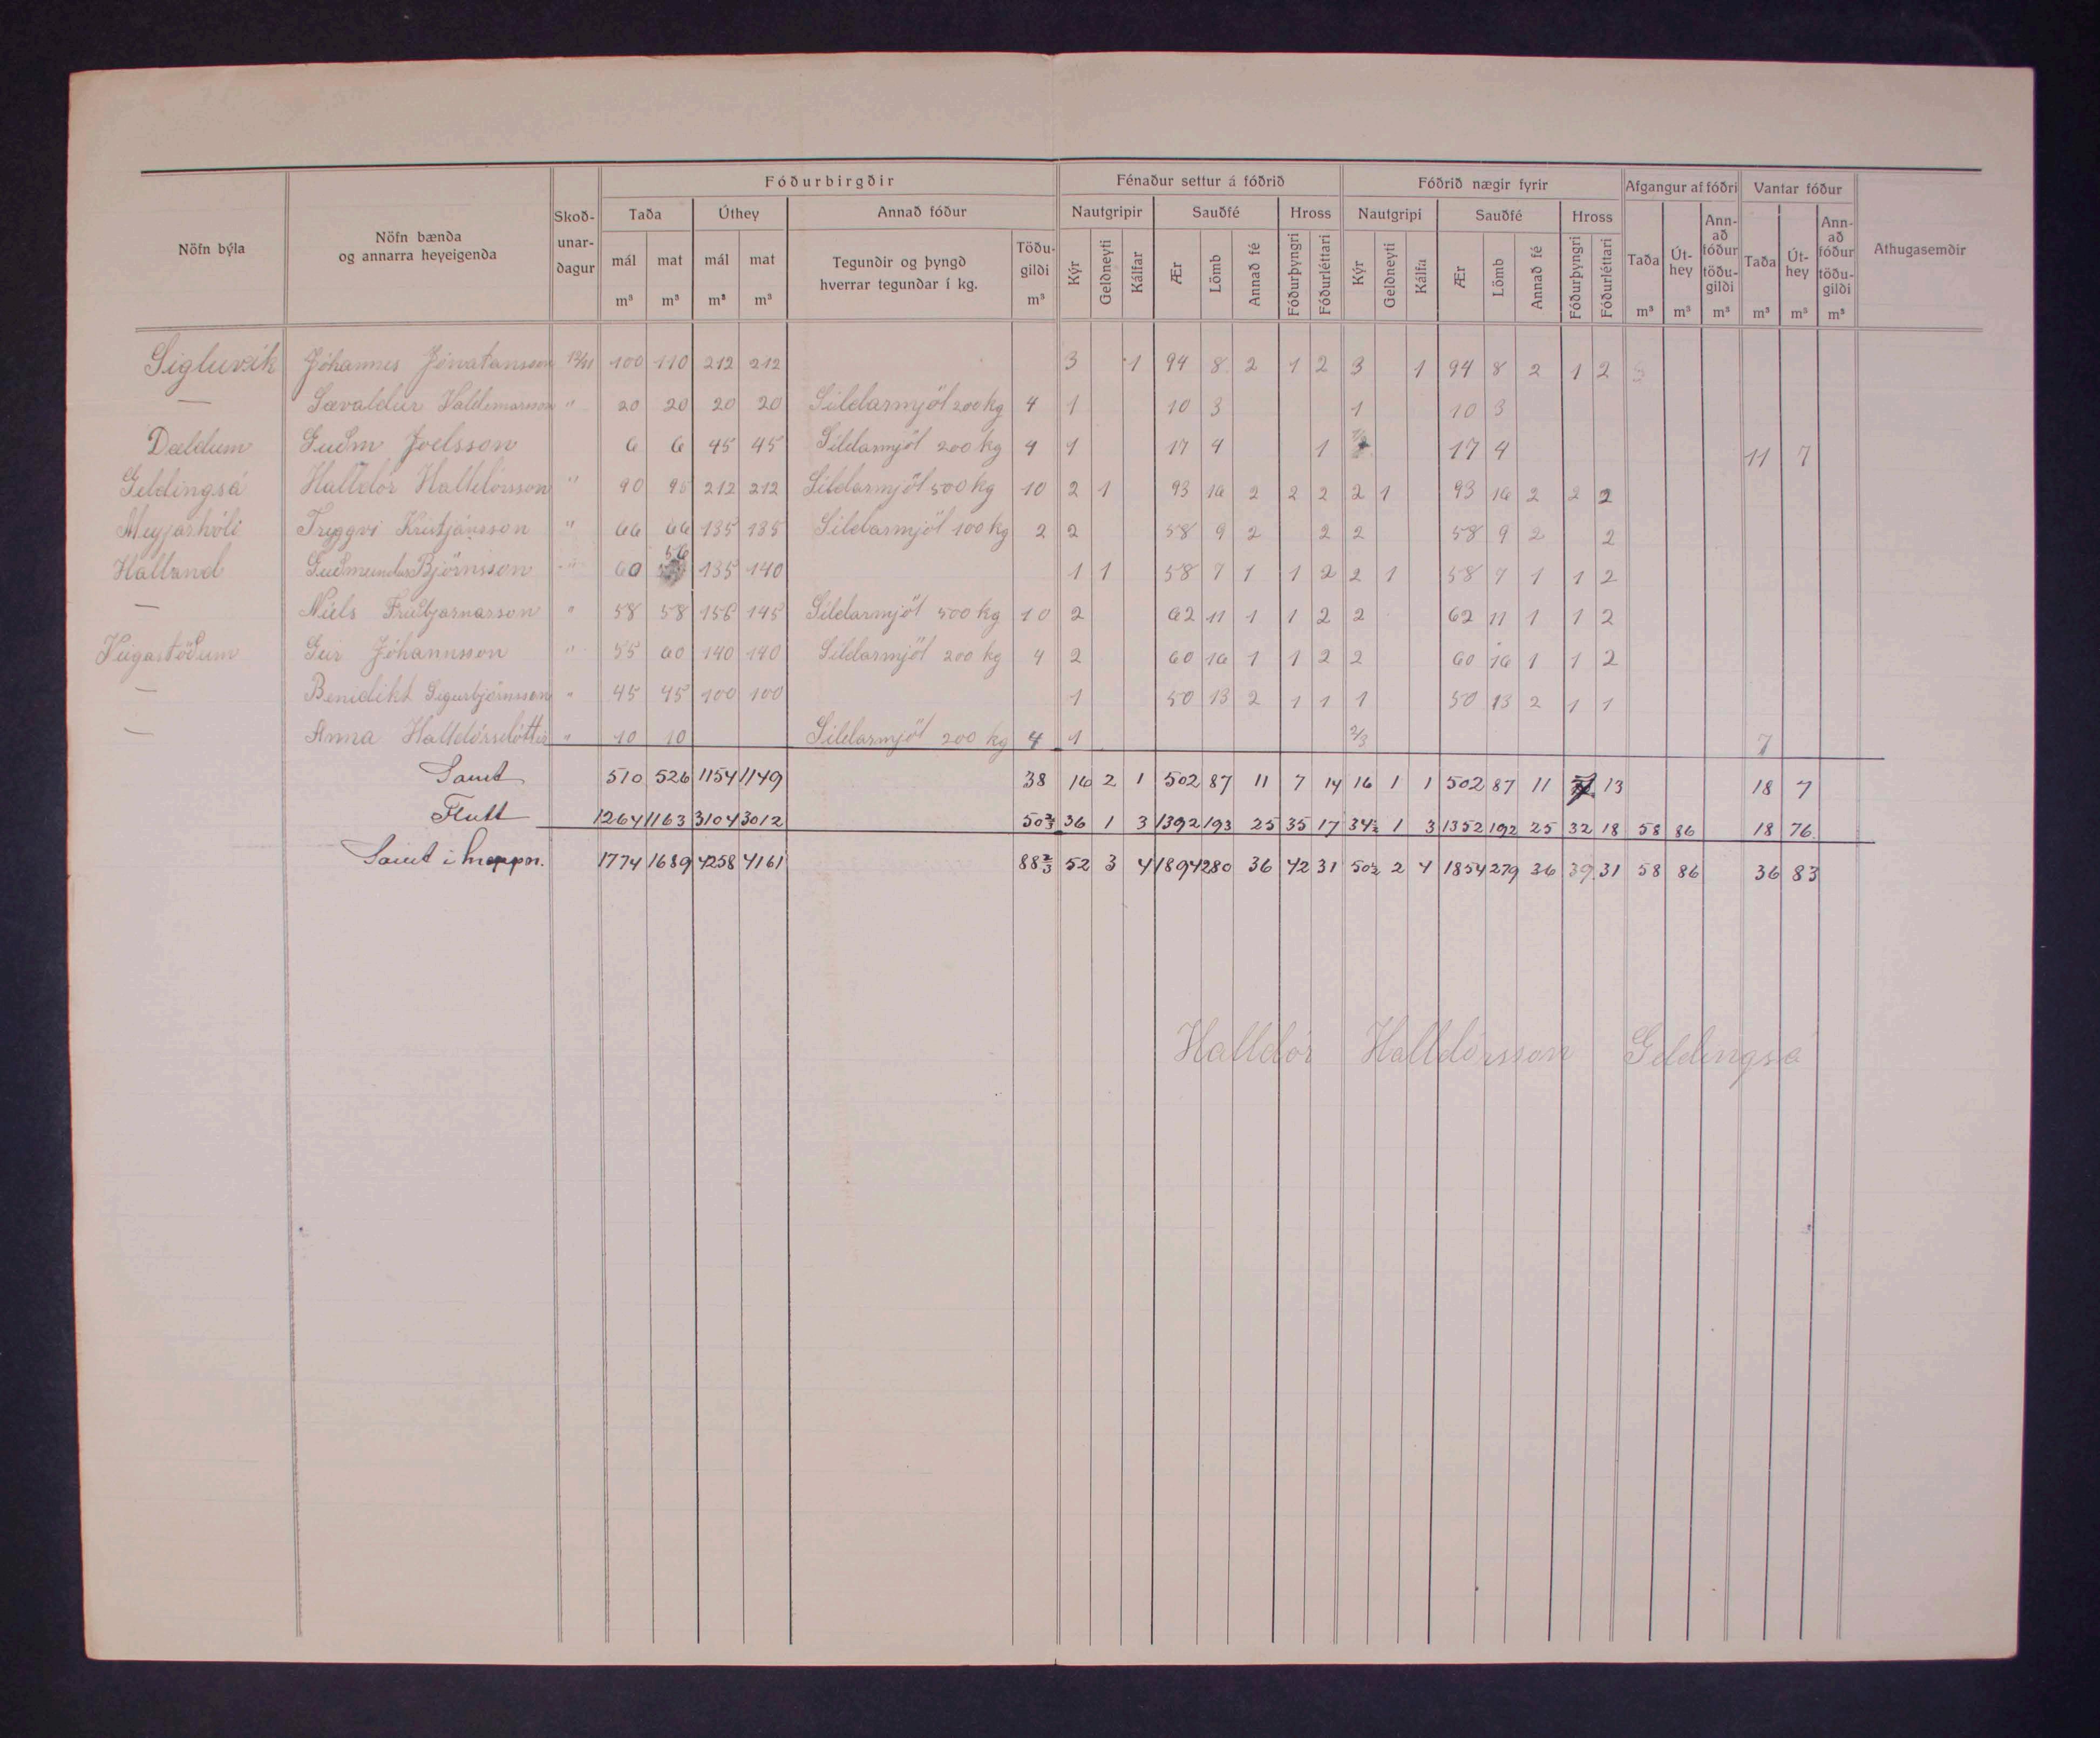 Fóðurbirgðir Fénaður settur á fóðrið Fóðrið nægir fyrir Afgangur af fóðri Vantar fóður
Nöfn býla Nöfn bænda og annarra heyeigenda Skoðunardagur Taða Úthey Annað fóður Nautgripir Sauðfé Hross Nautgripi Sauðfé Hross Taða Úthey Annað fóður töðugildi Taða Úthey Annað fóður töðugildi Athugasemdir
mál mat mál mat Tegundir og þyngd hverrar tegundar í kg. Töðugildi Kýr Geldneyti Kálfar Ær Lömb Annað fé Fóðurþyngri Fóðurléttari Kýr Geldneyti Kálfa Ær Lömb Annað fé Fóðurþyngri Fóðurléttari
m³ m³ m³ m³ m³ m³ m³ m³ m³ m³ m³
Sigluvík Jóhannes Jónatansson 13/11 100 110 212 212 3 1 94 8 2 1 2 3 1 94 8 2 1 2
— Sævaldur Valdemarsson " 20 20 20 20 Síldarmjöl 200 kg 4 1 10 3 1 10 3
Dældum Guðm Joelsson 6 6 45 45 Síldarmjöl 200 kg 4 1 17 4 1 17 4 11 7
Geldingsá Halldór Halldórsson " 90 95 212 212 Síldarmjöl 500 kg 10 2 1 93 16 2 2 2 2 1 93 16 2 2 2
Meyjarhóli Tryggvi Kristjánsson " 66 66 135 135 Síldarmjöl 100 kg 2 2 58 9 2 2 2 58 9 2 2
Halland Guðmundur Björnsson " 60 56 135 140 1 1 58 7 1 1 2 2 1 58 7 1 1 2
— Níels Friðbjarnarson " 58 58 156 145 Síldarmjöl 500 kg 10 2 62 11 1 1 2 2 62 11 1 1 2
Veigastöðum Geir Jóhannsson " 55 60 140 140 Síldarmjöl 200 kg 4 2 60 16 1 1 2 2 60 16 1 1 2
— Benidikt Sigurbjörnsson " 45 45 100 100 1 50 13 2 1 1 1 50 13 2 1 1
— Anna Halldórsdóttir " 10 10 Síldarmjöl 200 kg 4 1 2/3 7
Samt 510 526 1154 1149 38 16 2 1 502 87 11 7 14 16 1 1 502 87 11 7 13 18 7
Flutt 1264 1163 3104 3012 50 2/3 36 1 3 1392 193 25 35 17 34 1/2 1 3 1352 192 25 32 18 58 86 18 76
Samt í hreppn. 1774 1689 4258 4161 88 2/3 52 3 4 1894 280 36 42 31 50 1/2 2 4 1854 279 36 39 31 58 86 36 83
Halldór Halldórsson Geldingsá